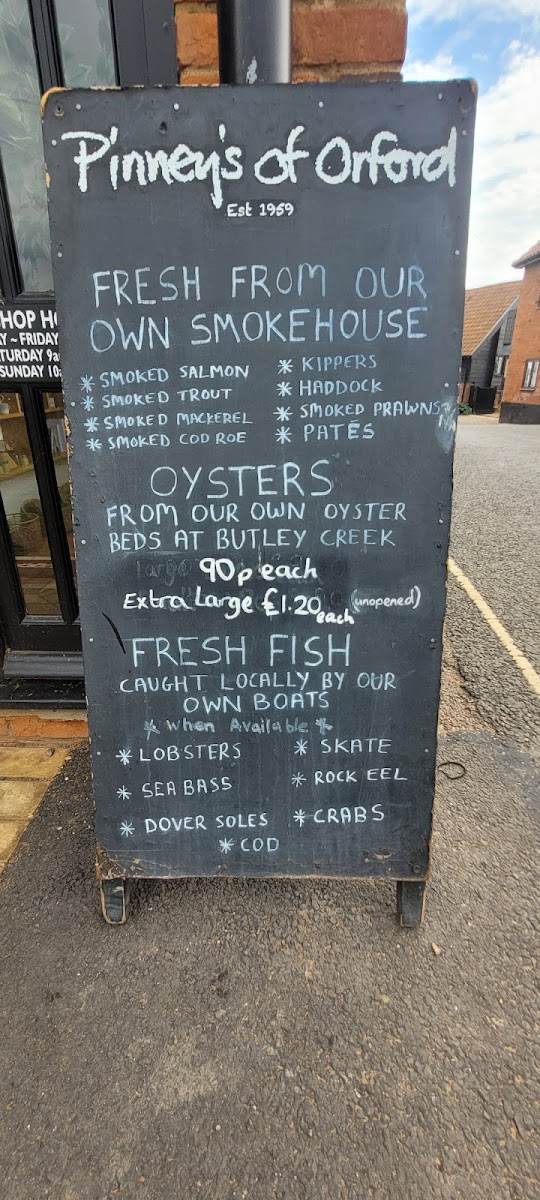 Pinney's of Orford
Est 1959
FRESH FROM OUR
OWN SMOKEHOUSE
* SMOKED SALMON
* SMOKED TROUT
* SMOKED MACKEREL
* SMOKED COD ROE
* KIPPERS
* HADDOCK
* SMOKED PRAWNS
* PATÉS
OYSTERS
FROM OUR OWN OYSTER
BEDS AT BUTLEY CREEK
90p each
Extra Large £1.20 each (unopened)
FRESH FISH
CAUGHT LOCALLY BY OUR
OWN BOATS
* When Available *
* LOBSTERS
* SEA BASS
* DOVER SOLES
* SKATE
* ROCK EEL
* CRABS
* COD
SHOP
FRIDAY
SUNDAY 10